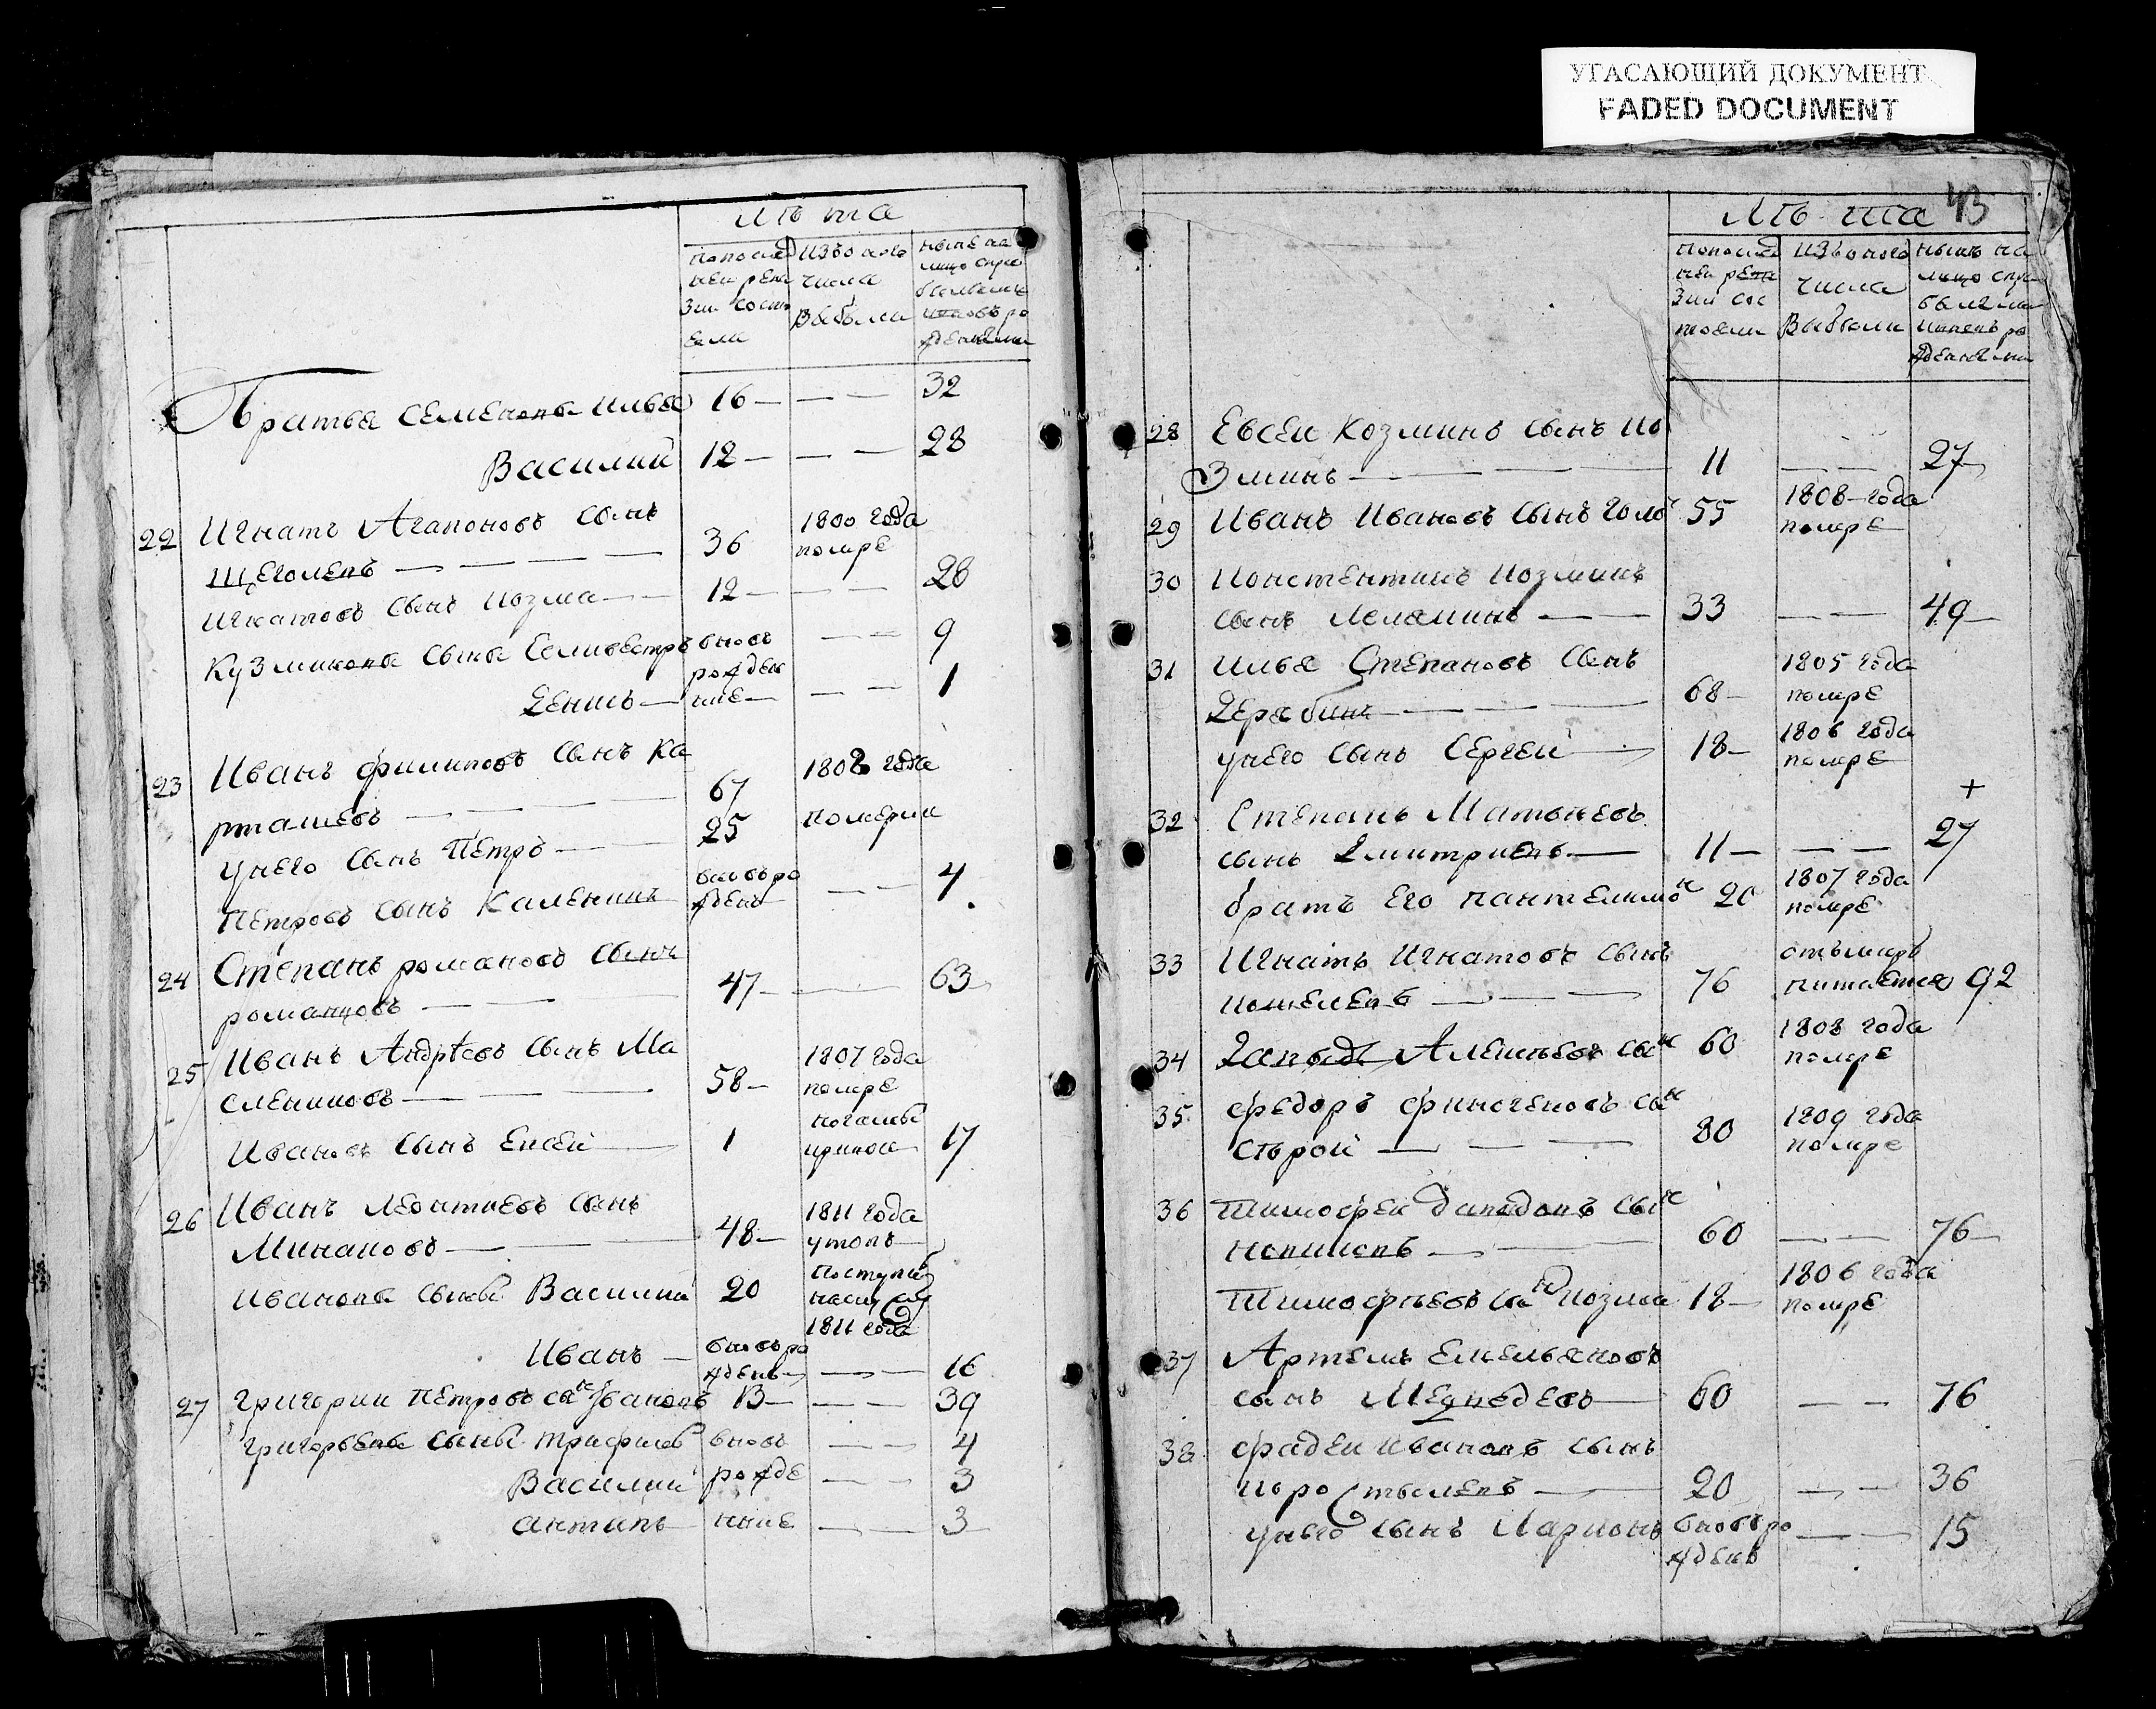 УГАСАЮЩИЙ ДОКУМЕНТ
FADED DOCUMENT
Лѣта
попослѣд
ней реви
зии состо
яли
изъ оного
числа
выбыли
ныне на
лицо
Братья Семеновы Илья 16 — — — 32
Василий 12 — — — 28
22 Игнатъ Агапоновъ сынъ
Щеголевъ — — — 36 1800 года помре
Игнатовъ сынъ Козма — 12 — — — 28
Кузминовы сынов Селивестръ вновь — — 9
Денисъ — рожден ные — — — 1
23 Иванъ филиповъ сынъ Ка
рташевъ — — — 67 1808 года
унего сынъ Петръ — — 25 померли
Петровъ сынъ Каленикъ вновьро жденъ — — 4
24 Степанъ романовъ сынъ
романцовъ — — — 47 — — 63
25 Иванъ Андрѣевъ сынъ Ма
слениковъ — — — 58 — 1807 года помре
Ивановъ сынъ Елисей — 1 17
26 Иванъ Леонтиевъ сынъ
Минаковъ — — 48 — 1811 года утопъ
Ивановы сынов Василий 20 Поступи 1811 года
Иванъ — вновьро жденъ — — — 16
27 григории Петровъ сынъ Ивановъ В — — — 39
григорьевы сынов трифилеи вновь — — 4
Василий рожде — — 3
антипъ нные — — 3
43
Лѣта
попослѣд
ней реви
зии сос
тояли
изъ оного
числа
выбыли
нынѣ на
лицо
28 Евсеи Козминъ сынъ Ко
зминъ — — — 11 — — 27
29 Иванъ Ивановъ сынъ 55 1808 года помре
30 Констентинъ Козминъ
сынъ — — 33 — — 49
31 Илья Степановъ сынъ
Дерябинъ — — — 68 — 1805 года помре
унего сынъ Сергей — 18 — 1806 года помре
+
32 Степанъ Матвѣевъ
сынъ Дмитриевъ — 11 — — — 27
братъ его пантелимонъ 20 1807 года помре
33 Игнатъ Игнатовъ сынъ
Кошелевъ — — — 76 отъмиру питается 92
34 Давыдъ Алексѣевъ сынъ 60 1808 года помре
35 Федоръ финогеновъ сынъ
Старой — — — 80 1809 года помре
36 Тимофеи Давыдовъ сынъ
— — 60 — — 76
Тимофѣевъ сынъ Козма 18 — 1806 года помре
37 Артемъ Емельяновъ
сынъ Медведевъ — 60 — — 76
38 фадеи Ивановъ сынъ
Коростылевъ — — 20 — — 36
унего сынъ Ларионъ вновьро жденъ — — 15